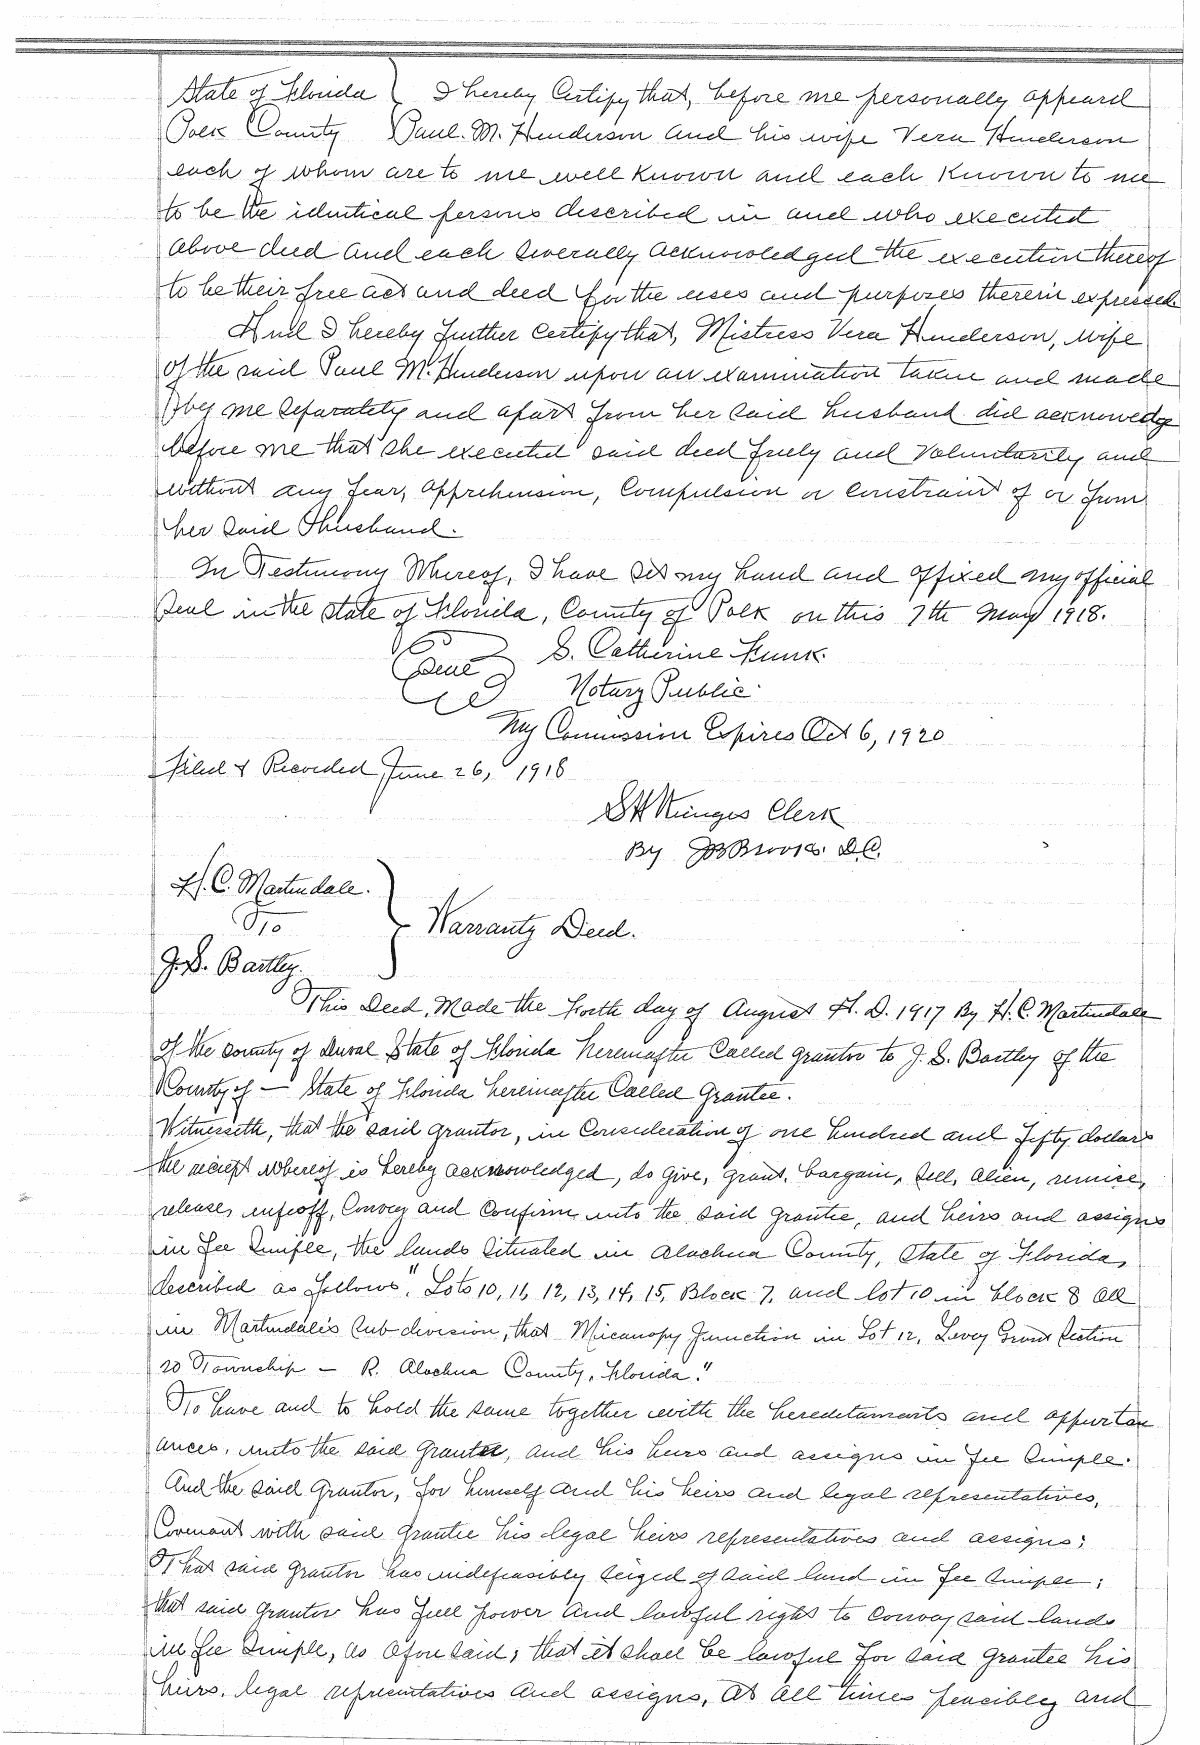 State of Florida } I hereby Certify that, before me personally appeared
Polk County Paul. M. Henderson and his wife Vera Henderson
each of whom are to me well known and each known to me
to be the identical persons described in and who executed
above deed and each severally acknowledged the execution thereof
to be their free act and deed for the uses and purposes therein expressed
And I hereby further certify that, Mistress Vera Henderson, wife
of the said Paul M. Henderson upon an examination taken and made
by me separately and apart from her said husband did acknowedg
before me that she executed said deed freely and voluntarily and
without any fear, apprehension, Compulsion or constraint of or from
her said husband.
In Testimony Whereof, I have set my hand and affixed my official
seal in the state of Florida, County of Polk on this 7th May 1918.
Seal S. Catherine Funk.
Notary Public.
My Commission Expires Oct 6, 1920
Filed & Recorded June 26, 1918
Clerk
By D.C.
H. C. Martindale.
To } Warranty Deed.
J. S. Bartley.
This Deed, Made the Forth day of August A. D. 1917 By H. C. Martindale
of the county of Duval State of Florida hereinafter Called grantor to J. S. Bartley of the
County of — State of Florida hereinafter Called Grantee.
Witnesseth, that the said grantor, in consideration of one hundred and fifty dollars
the reciept whereof is hereby acknowledged, do give, grant, bargain, sell, alien, remise,
release, enfeoff, Convey and Confirm unto the said grantee, and heirs and assigns
in fee simple, the lands situated in Alachua County, State of Florida,
described as follows", Lots 10, 11, 12, 13, 14, 15, Block 7, and lot 10 in block 8 all
in Martindale's subdivision, that Micanopy Junction in Lot 12, Levey Grant Section
20 Township — R. Alachua County, Florida."
To have and to hold the same together with the heredetaments and appurten
ances, unto the said grantee, and his heirs and assigns in fee simple.
And the said grantor, for himself and his heirs and legal representatives,
Covenant with said grantee his legal heirs representatives and assigns;
That said grantor has indefeasibly seized of said land in fee simple;
that said grantor has full power and lawful right to convey said lands
in fee simple, as aforesaid; that it shall be lawful for said grantee his
heirs, legal representatives and assigns, at all times peacibley and